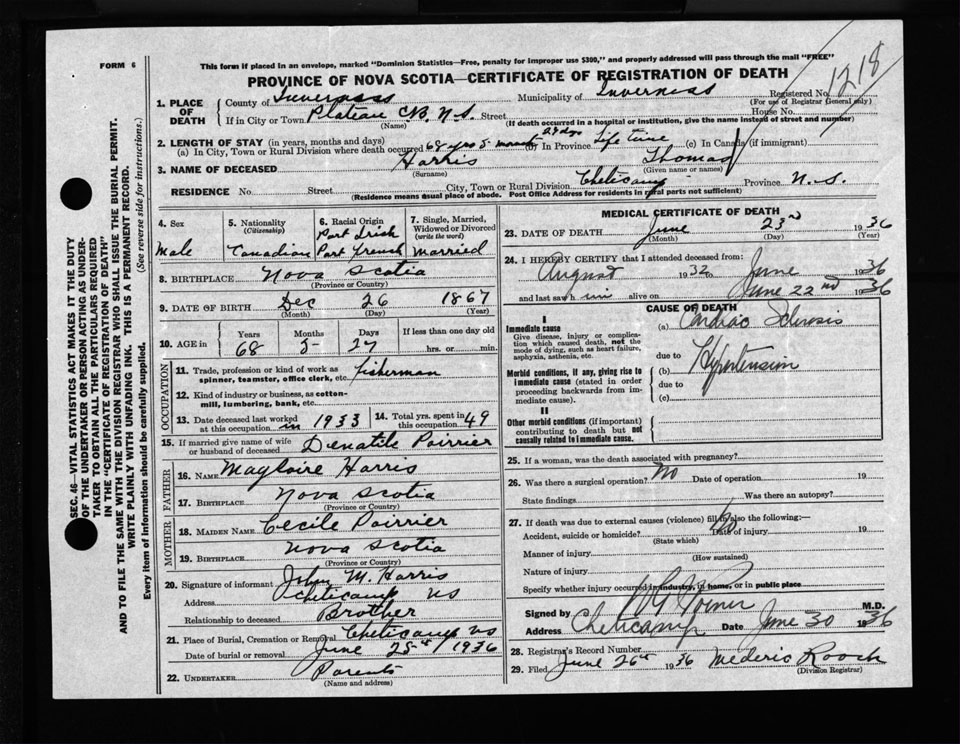 FORM 6
This form if placed in an envelope, marked "Dominion Statistics—Free, penalty for improper use $300," and properly addressed will pass through the mail "FREE"
PROVINCE OF NOVA SCOTIA—CERTIFICATE OF REGISTRATION OF DEATH
1218
SEC. 46—VITAL STATISTICS ACT MAKES IT THE DUTY
OF THE UNDERTAKER OR PERSON ACTING AS UNDER-
TAKER TO OBTAIN ALL THE PARTICULARS REQUIRED
IN THE "CERTIFICATE OF REGISTRATION OF DEATH"
AND TO FILE THE SAME WITH THE DIVISION REGISTRAR WHO SHALL ISSUE THE BURIAL PERMIT.
WRITE PLAINLY WITH UNFADING INK. THIS IS A PERMANENT RECORD.
Every item of Information should be carefully supplied. (See reverse side for instructions.)
1. PLACE OF DEATH County of Inverness Municipality of Inverness Registered No.
(For use of Registrar General only)
If in City or Town Plateau C.B. N.S. Street House No.
(Name) (If death occurred in a hospital or institution, give the name instead of street and number)
2. LENGTH OF STAY (in years, months and days)
(a) In City, Town or Rural Division where death occurred 68 yrs 5 months 27 dys (b) In Province Life time (c) In Canada (if immigrant)
3. NAME OF DECEASED Harris Thomas
(Surname) (Given name or names)
RESIDENCE No Street City, Town or Rural Division Cheticamp Province N.S.
(Residence means usual place of abode. Post Office Address for residents in rural parts not sufficient)
4. Sex
Male
5. Nationality
(Citizenship)
Canadian
6. Racial Origin
Part Irish
Part French
7. Single, Married, Widowed or Divorced
(write the word)
Married
8. BIRTHPLACE Nova Scotia
(Province or Country)
9. DATE OF BIRTH Dec 26 1867
(Month) (Day) (Year)
10. AGE in Years Months Days If less than one day
68 5 27 hrs. or min.
OCCUPATION
11. Trade, profession or kind of work as
spinner, teamster, office clerk, etc. fisherman
12. Kind of industry or business, as cotton-
mill, lumbering, bank, etc.
13. Date deceased last worked
at this occupation in 1933
14. Total yrs. spent in
this occupation 49
15. If married give name of wife
or husband of deceased Denatile Poirrier
FATHER
16. NAME Magloire Harris
17. BIRTHPLACE Nova Scotia
(Province or Country)
MOTHER
18. MAIDEN NAME Cecile Poirrier
19. BIRTHPLACE Nova Scotia
(Province or Country)
20. Signature of informant John M. Harris
Address Cheticamp NS
Relationship to deceased Brother
21. Place of Burial, Cremation or Removal Cheticamp NS
Date of burial or removal June 25th / 1936
22. UNDERTAKER Parents
(Name and address)
MEDICAL CERTIFICATE OF DEATH
23. DATE OF DEATH June 23rd 1936
(Month) (Day) (Year)
24. I HEREBY CERTIFY that I attended deceased from:
August 1932 to June 1936
and last saw him alive on June 22nd 1936
CAUSE OF DEATH
I
Immediate cause
Give disease, injury or complica-
tion which caused death, not the
mode of dying, such as heart failure,
asphyxia, asthenia, etc.
(a) Cardiac Sclerosis
due to
Morbid conditions, if any, giving rise to
immediate cause (stated in order
proceeding backwards from im-
mediate cause).
(b) Hypertension
due to
(c)
II
Other morbid conditions (if important)
contributing to death but not
causally related to immediate cause.
25. If a woman, was the death associated with pregnancy?
26. Was there a surgical operation? No Date of operation 19
State findings Was there an autopsy?
27. If death was due to external causes (violence) fill in also the following:—
Accident, suicide or homicide? No Date of injury 19
(State which)
Manner of injury
(How sustained)
Nature of injury
Specify whether injury occurred in industry, in home, or in public place
Signed by M.D.
Address Cheticamp Date June 30 1936
28. Registrar's Record Number
29. Filed June 26th 1936 Mederic Roach
(Division Registrar)